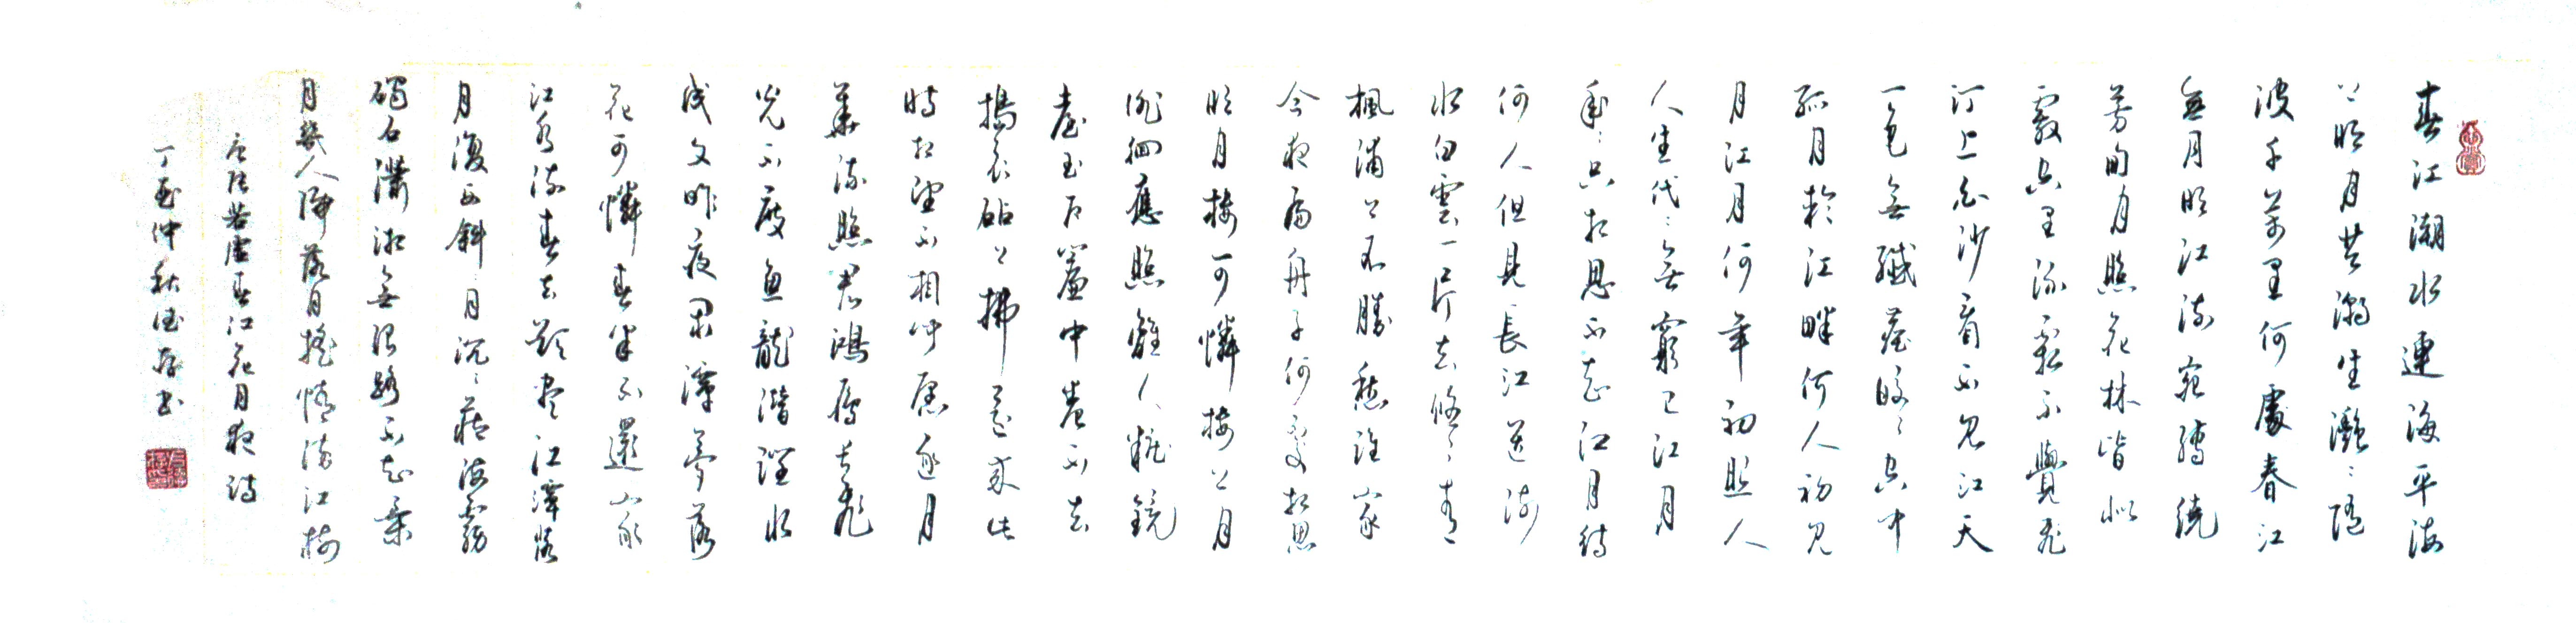 春江潮水連海平海
上明月共潮生灩〻隨
波千萬里何處春江
無月明江流宛轉繞
芳甸月照花林皆似
霰空里流霜不覺飛
汀上白沙看不見江天
一色無纖塵皎〻空中
孤月輪江畔何人初見
月江月何年初照人
人生代〻無窮已江月
年〻只相思不知江月待
何人但見長江送流
水白雲一片去悠〻青
楓浦上不勝愁誰家
今夜扁舟子何處相思
明月樓可憐樓上月
徘徊應照離人粧鏡
臺玉戶簾中卷不去
搗衣砧上拂還來此
時相望不相聞願逐月
華流照君鴻雁長飛
光不度魚龍潛躍水
成文昨夜閑潭夢落
花可憐春半不還家
江水流春去欲盡江潭落
月復西斜斜月沉〻藏海霧
碣石瀟湘無限路不知乘
月幾人歸落月搖情滿江樹
唐張若虛春江花月夜詩
丁亥仲秋